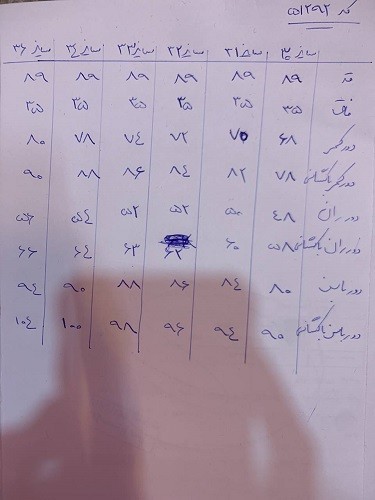 کد ۵۱۲۹۲
سایز ۳۰ سایز ۳۱ سایز ۳۲ سایز ۳۳ سایز ۳۴ سایز ۳۶
قد ۸۹ ۸۹ ۸۹ ۸۹ ۸۹ ۸۹
فاق ۳۵ ۳۵ ۳۵ ۳۵ ۳۵ ۳۵
دور کمر ۶۸ ۷۰ ۷۲ ۷۴ ۷۸ ۸۰
دور کمر باکشسانی ۷۸ ۸۲ ۸۴ ۸۶ ۸۸ ۹۰
دور ران ۴۸ ۵۰ ۵۲ ۵۲ ۵۴ ۵۶
دور ران باکشسانی ۵۸ ۶۰ ۶۲ ۶۳ ۶۴ ۶۶
دور باسن ۸۰ ۸۴ ۸۶ ۸۸ ۹۰ ۹۴
دور باسن باکشسانی ۹۰ ۹۴ ۹۶ ۹۸ ۱۰۰ ۱۰۴